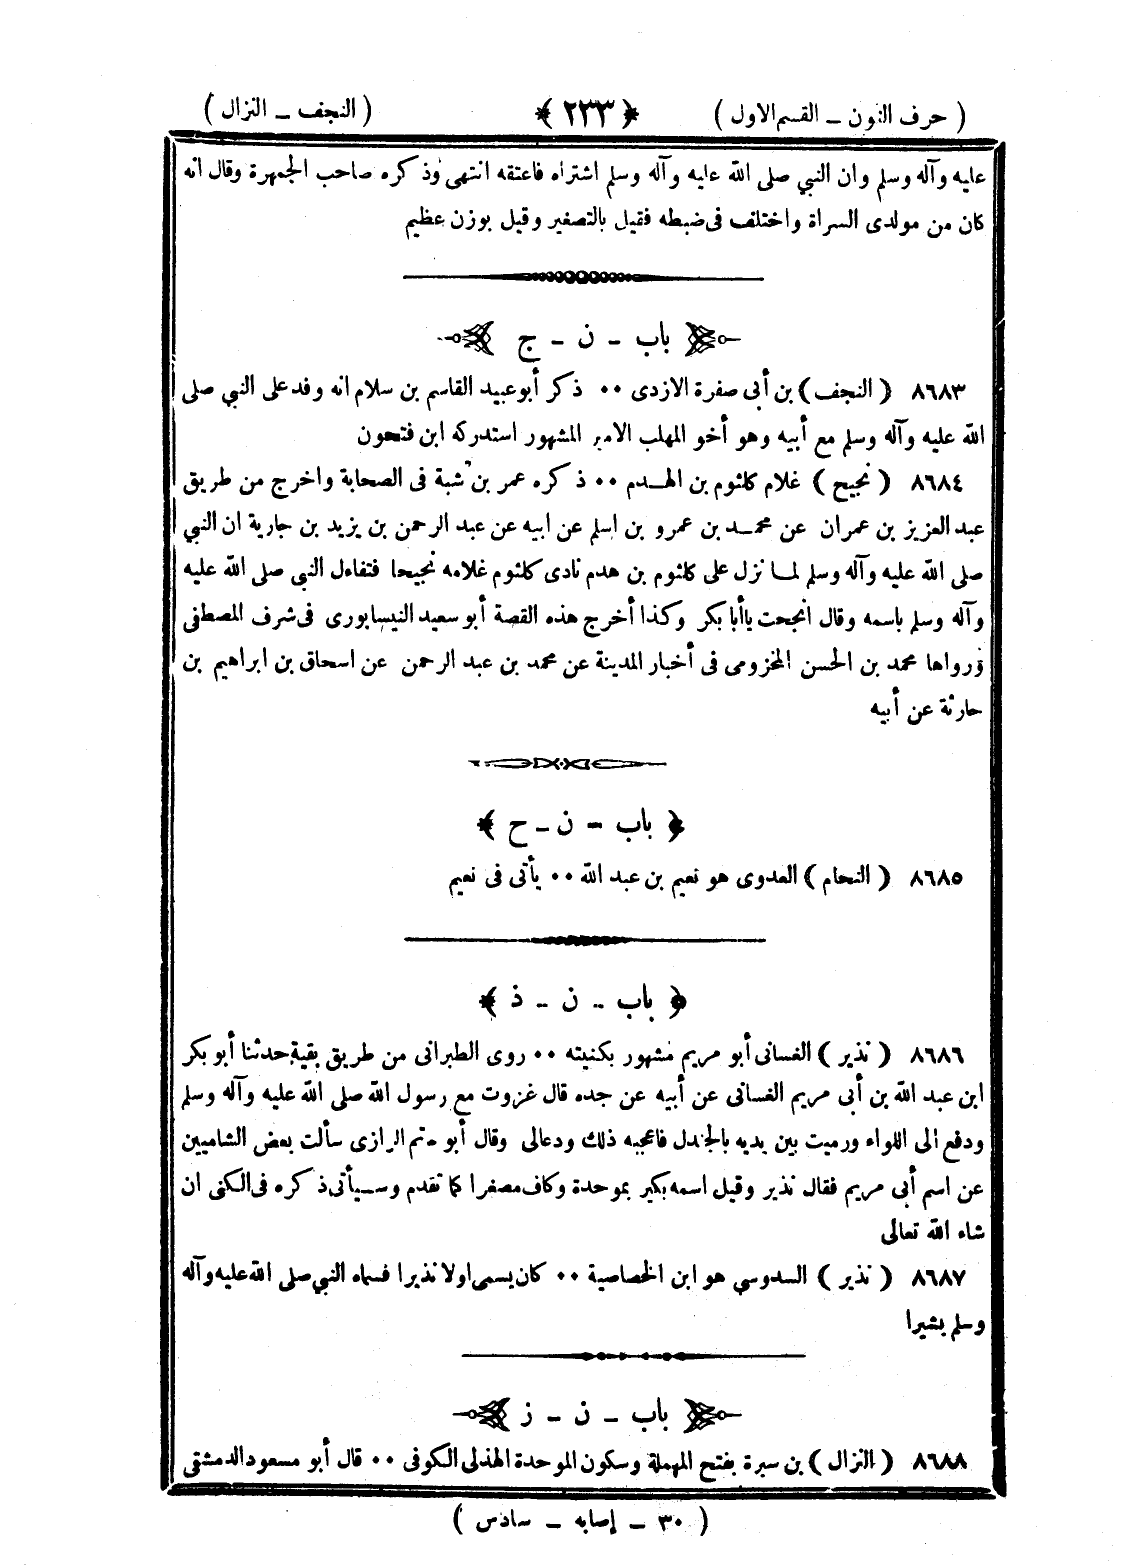 ( حرف النون ــ القسم الاول ) ﴿ ٢٣٣ ﴾ ( النجف ــ النزال )
عليه وآله وسلم وان النبي صلى الله عليه وآله وسلم اشتراه فاعتقه انتهى وذكره صاحب الجمهرة وقال انه
كان من مولدى السراة واختلف فى ضبطه فقيل بالتصغير وقيل بوزن عظيم
باب ــ ن ــ ج
٨٦٨٣ ( النجف ) بن أبى صفرة الازدى ٠٠ ذكر أبوعبيد القاسم بن سلام انه وفد على النبي صلى
الله عليه وآله وسلم مع أبيه وهو أخو المهلب الامير المشهور استدركه ابن فتحون
٨٦٨٤ ( نجيح ) غلام كلثوم بن الهـدم ٠٠ ذكره عمر بن شبة فى الصحابة واخرج من طريق
عبد العزيز بن عمران عن محمـد بن عمرو بن اسلم عن ابيه عن عبد الرحمن بن يزيد بن جارية ان النبي
صلى الله عليه وآله وسلم لمـا نزل على كلثوم بن هدم نادى كلثوم غلامه نجيحا فتفاءل النبي صلى الله عليه
وآله وسلم باسمه وقال انجحت ياأبا بكر وكذا أخرج هذه القصة أبو سعيد النيسابورى فى شرف المصطفى
ورواها محمد بن الحسن المخزومى فى أخبار المدينة عن محمد بن عبد الرحمن عن اسحاق بن ابراهيم بن
حارثة عن أبيه
﴿ باب ــ ن ــ ح ﴾
٨٦٨٥ ( النحام ) العدوى هو نعيم بن عبد الله ٠٠ يأتى فى نعيم
﴿ باب ــ ن ــ ذ ﴾
٨٦٨٦ ( نذير ) الغسانى أبو مريم مشهور بكنيته ٠٠ روى الطبرانى من طريق بقية حدثنا أبو بكر
ابن عبد الله بن أبى مريم الغسانى عن أبيه عن جده قال غزوت مع رسول الله صلى الله عليه وآله وسلم
ودفع الى اللواء ورميت بين يديه بالجندل فاعجبه ذلك ودعالى وقال أبو حاتم الرازى سألت بعض الشاميين
عن اسم أبى مريم فقال نذير وقيل اسمه بكير بموحدة وكاف مصغرا كما تقدم وسـيأتى ذكره فى الكنى ان
شاء الله تعالى
٨٦٨٧ ( نذير ) السدوسي هو ابن الخصاصية ٠٠ كان يسمى اولا نذيرا فسماه النبي صلى الله عليه وآله
وسلم بشيرا
باب ــ ن ــ ز
٨٦٨٨ ( النزال ) بن سبرة بفتح المهملة وسكون الموحدة الهذلى الكوفى ٠٠ قال أبو مسعود الدمشقى
( ٣٠ ــ إصابه ــ سادس )